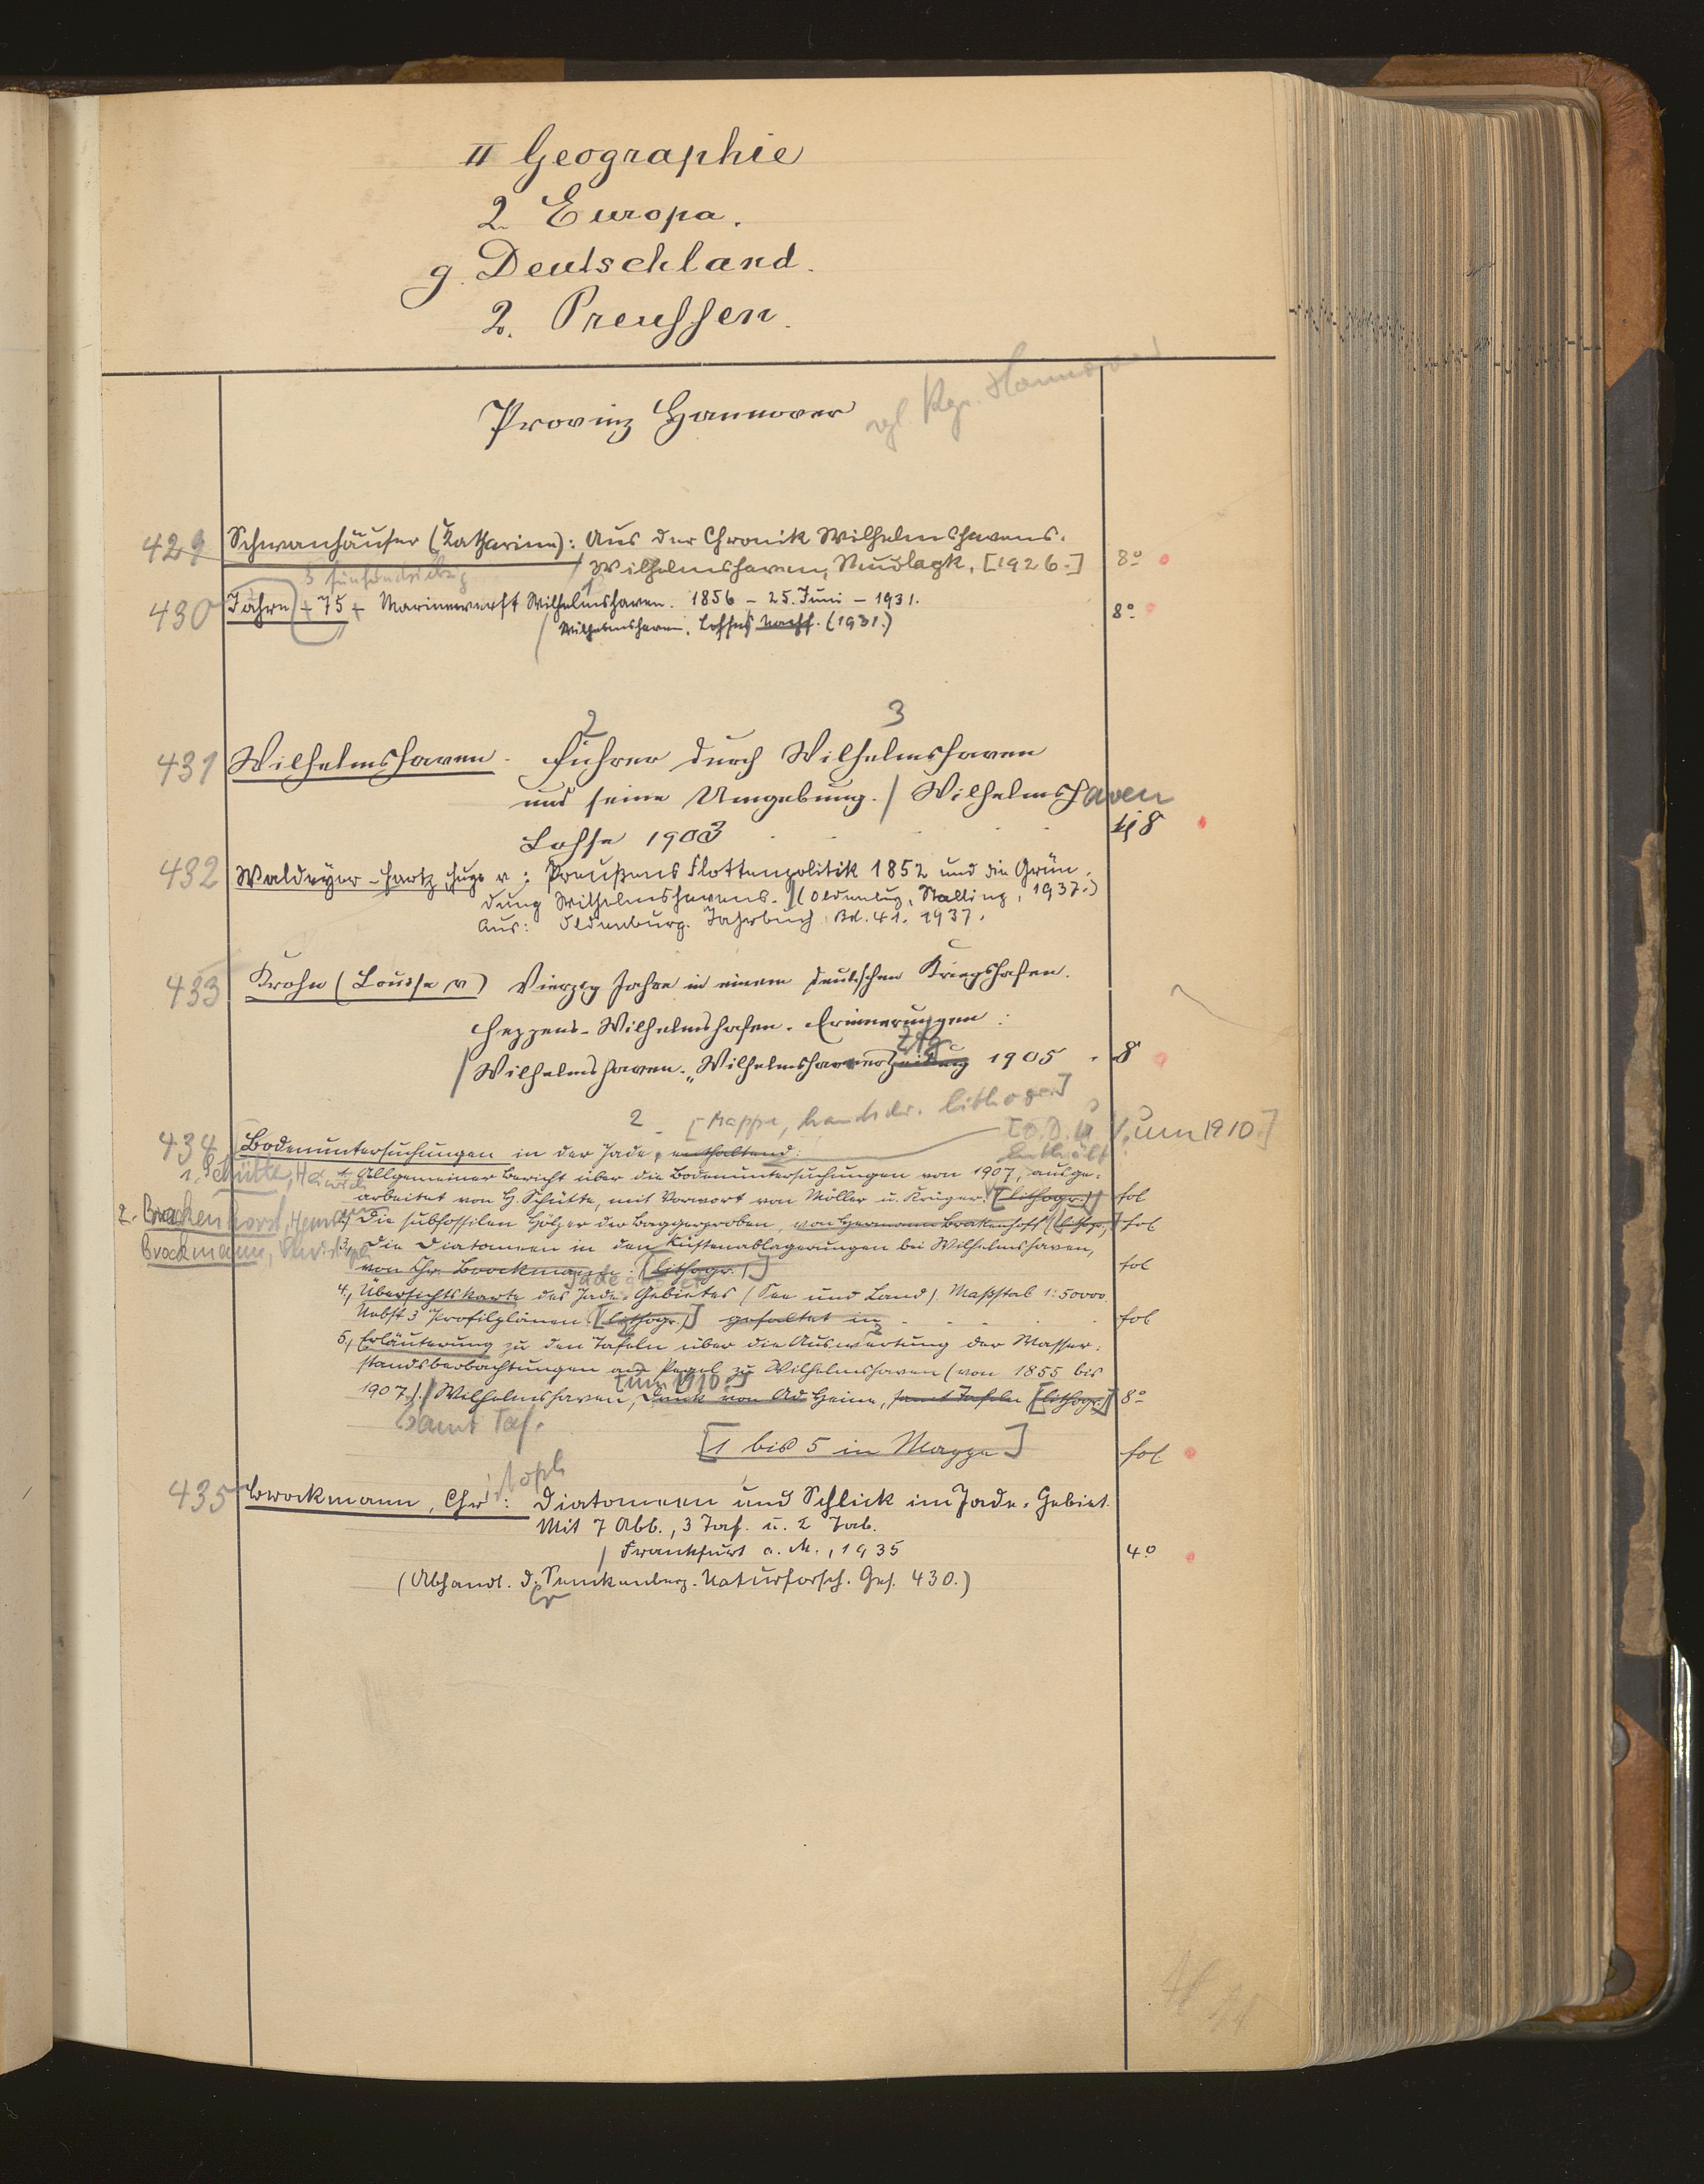 II Geographie
2. Europa.
g. Deutschland.
2. Preussen.
Provinz Hannover
vgl. Kgr. Hannover
429 Schwanhäuser (Katharine): Aus der Chronik Wilhelmshavens.
/ Wilhelmshaven, [1926.] 8º
fünfundsiebzig
430 Jahre + 75 + Marinewerft Wilhelmshaven. 1856 - 25. Juni - 1931. 8º
/ Wilhelmshaven. Lohses Nachf. (1931.)
2 3
431 Wilhelmshaven. Führer durch Wilhelmshaven
und seine Umgebung. / Wilhelmshaven
Lohse 1903 8
432 Waldeyer-Hartz, Hugo v.: Preußens Flottenpolitik 1852 und die Grün-
dung Wilhelmshavens. / (Oldenburg, Stalling, 1937.)
Aus: Oldenburg. Jahrbuch Bd. 41. 1937.
433 Krohn (Louise v) Vierzig Jahre in einem deutschen Kriegshafen.
Heppens-Wilhelmshafen. Erinnerungen:
Ztg.
/ Wilhelmshaven. „Wilhelmshavener Zeitung 1905. 8
2 [Mappe, handschr. lithogr.]
434 Bodenuntersuchungen in der Jade, enthaltend: [O. D. u. J. um 1910.]
Enthält:
1. Schütte, Heinrich 1, Allgemeiner Bericht über die Bodenuntersuchungen von 1907, ausge-
arbeitet von H. Schütte, mit Vorwort von Möller u. Krüger. [(lithogr.)] fol
2. Brackenhoff, Hermann 2, Die subfossilen Hölzer der Baggerproben, von Hermann Brakenhoff (lithogr.) fol
Brockmann, Christoph 3, Die Diatomeen in den Küstenablagerungen bei Wilhelmshaven,
von Chr. Brockmann. [(lithogr.)] fol
4, Übersichtskarte des Jade-Gebietes (See und Land). Maßstab 1:50000.
Nebst 3 Profilplänen [(lithogr.)] gefaltet in fol
5, Erläuterung zu den Tafeln über die Auswertung der Wasser-
standsbeobachtungen am Pegel zu Wilhelmshaven (von 1855 bis
[um 1910.]
1907). / Wilhelmshaven, Druck von Ad Heine, samt Tafeln [(lithogr.)] 8º
Samt Taf.
[1 bis 5 in Mappe] fol
435 Brockmann, Christoph: Diatomeen und Schlick im Jade-Gebiet.
Mit 7 Abb., 3 Taf. u. 2 Tab.
/ Frankfurt a. M., 1935 4º
(Abhandl. d. Senckenberg. Naturforsch. Ges. 430.)